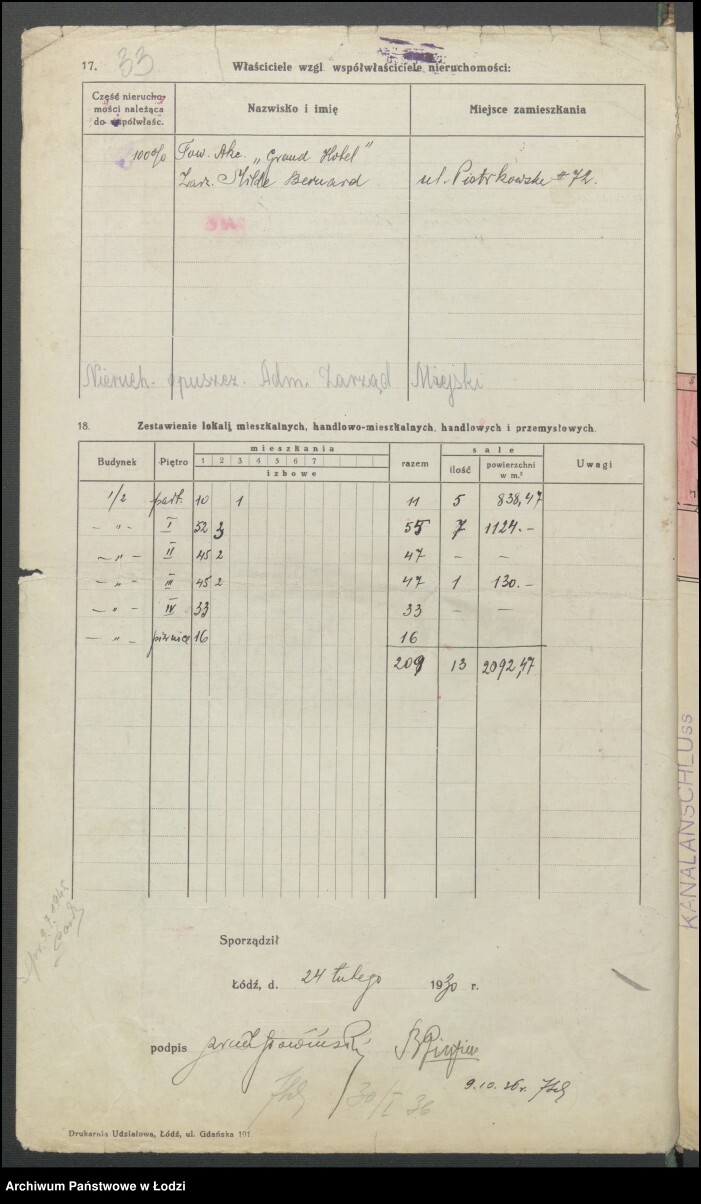 17. 33 Właściciele wzgl. współwłaściciele nieruchomości:
Część nierucho-
mości należąca
do współwłaśc.
Nazwisko i imię
Miejsce zamieszkania
100% Tow. Akc. „Grand Hotel”
Zarz. Milde Bernard ul. Piotrkowska # 72.
Nieruch. opuszcz. Adm. Zarząd Miejski
18. Zestawienie lokali mieszkalnych, handlowo-mieszkalnych, handlowych i przemysłowych.
Budynek Piętro mieszkania razem sale Uwagi
1 2 3 4 5 6 7 ilość powierzchni
izbowe w m.²
1/2 part. 10 1 11 5 838,47
— „ — I 52 3 55 7 1124.—
— „ — II 45 2 47 — —
— „ — III 45 2 47 1 130.—
— „ — IV 33 33 — —
— „ — piwnice 16 16
209 13 2092,47
Sporządził
Łódź, d. 24 lutego 1930 r.
podpis
9.10.36r.
30/I 36
Drukarnia Udziałowa, Łódź, ul. Gdańska 101.
KANALANSCHLUSS
Archiwum Państwowe w Łodzi